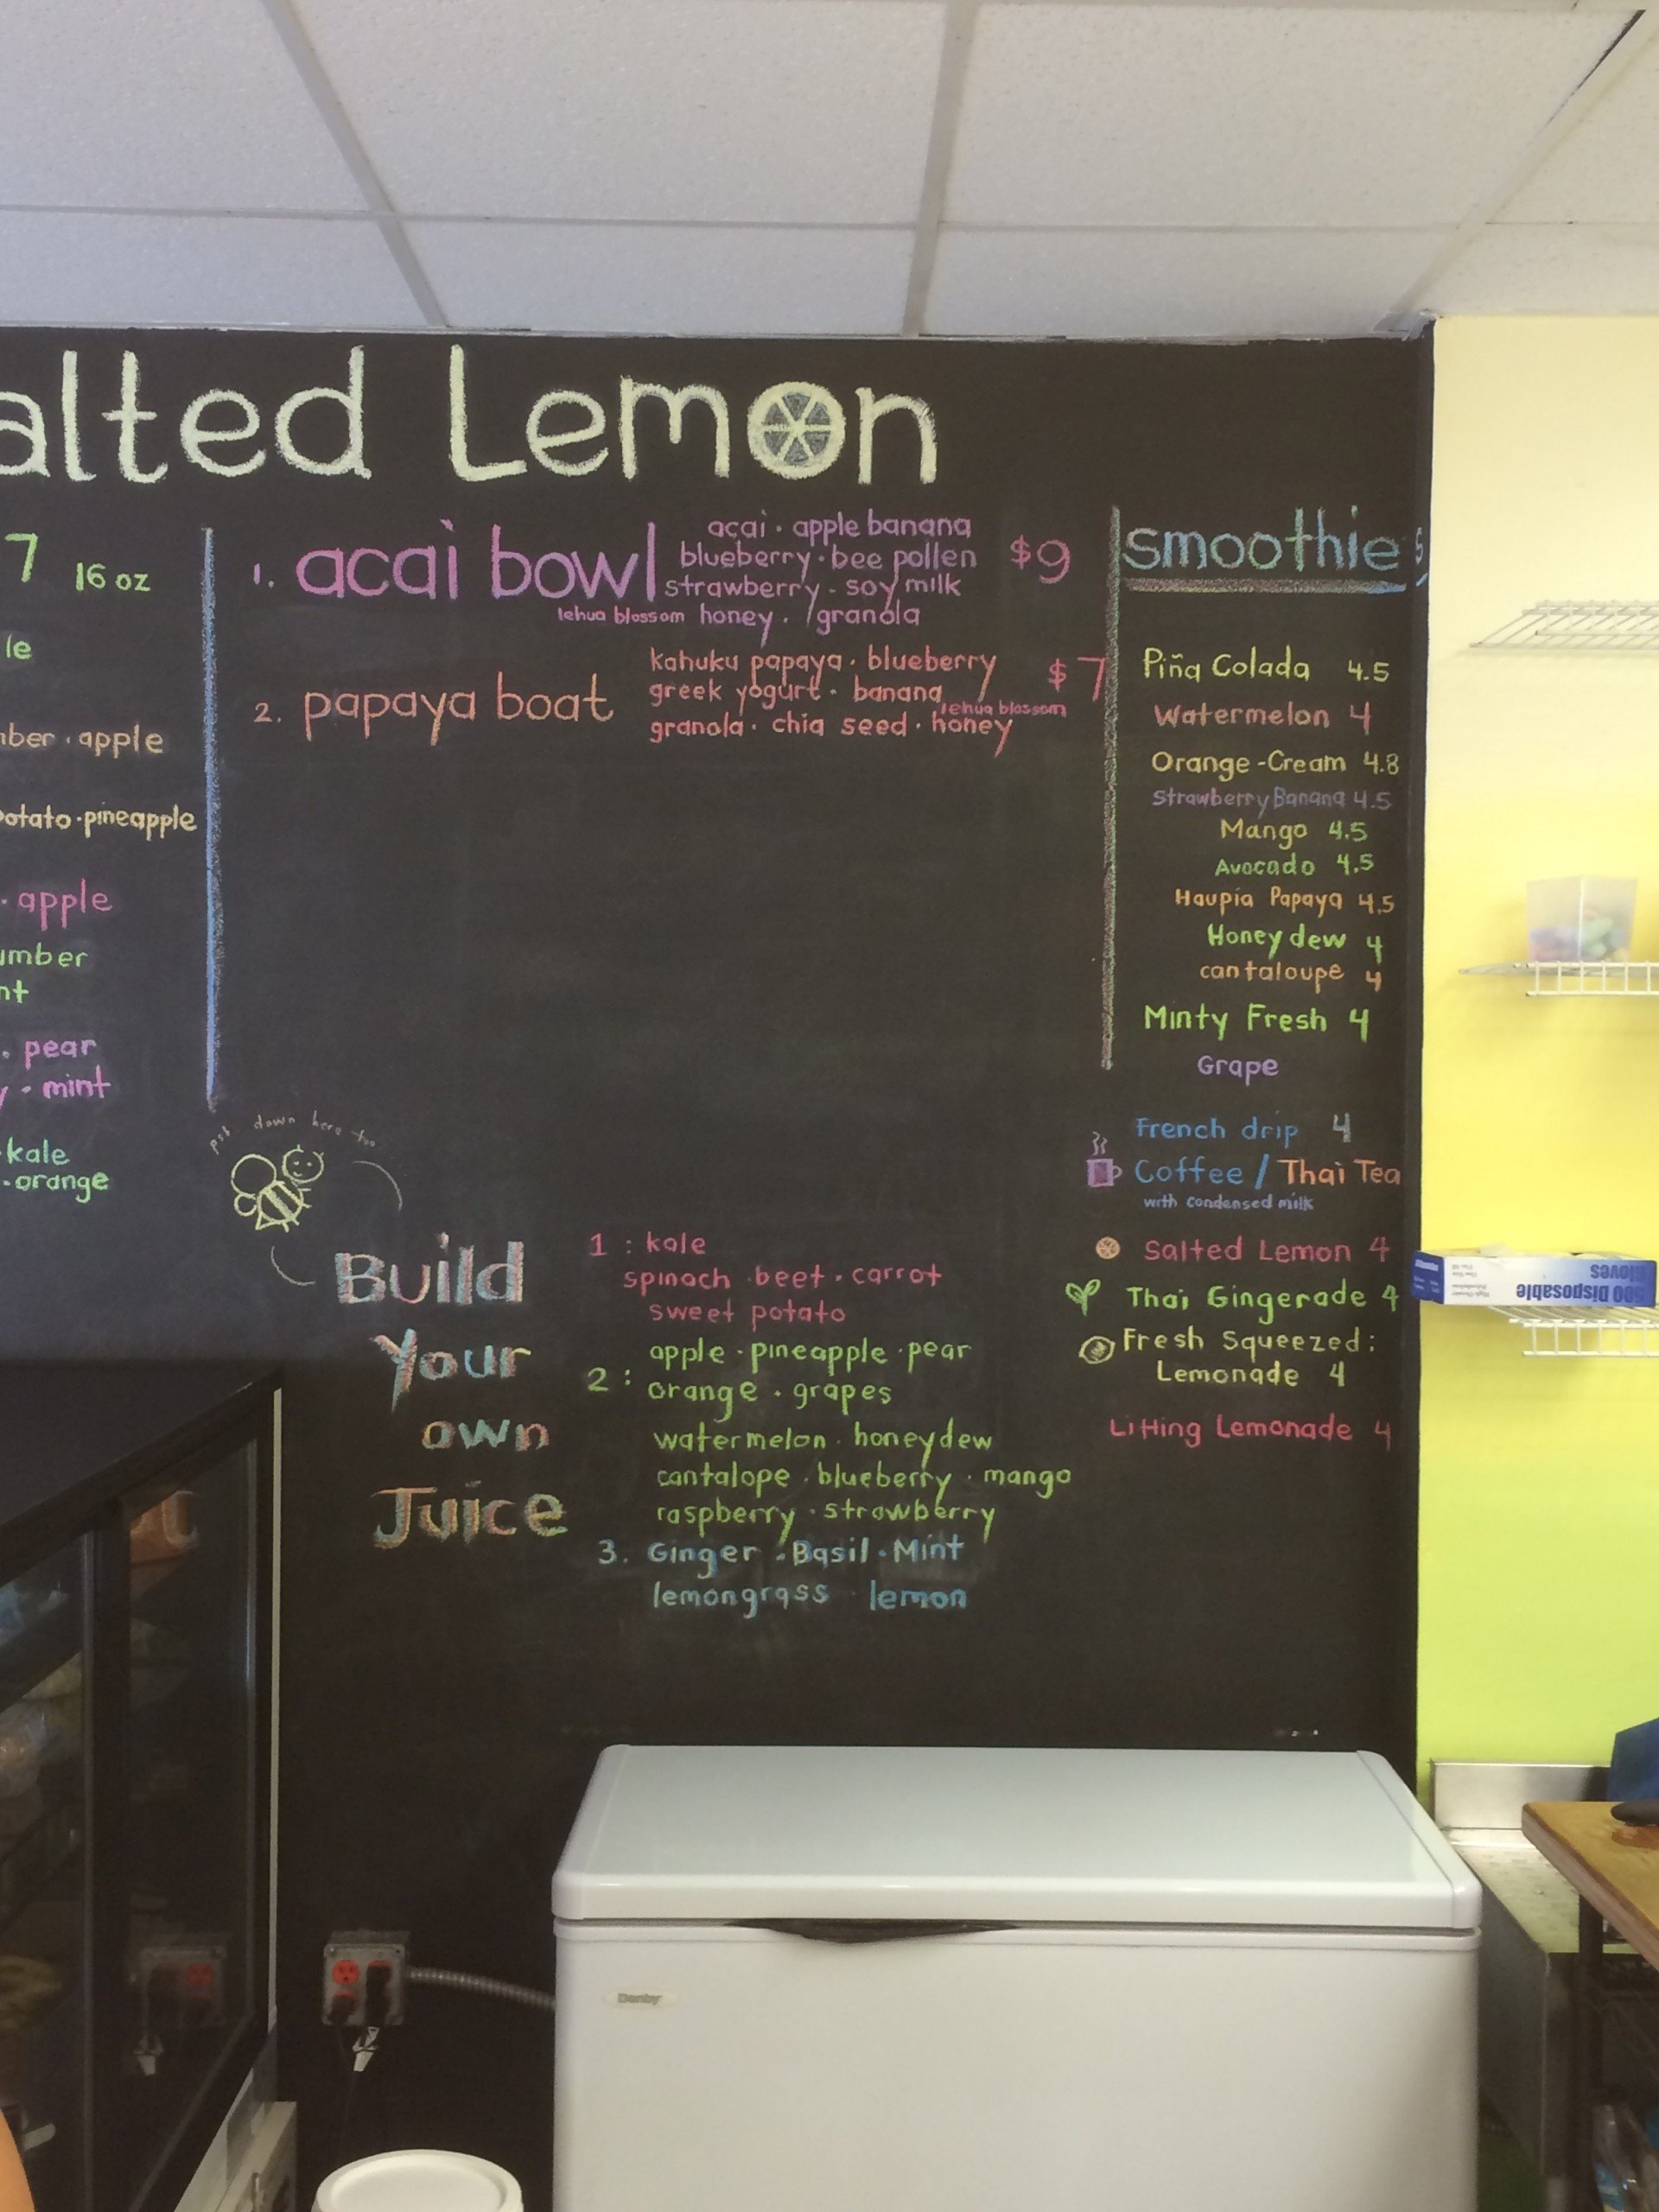 alted Lemon
7 16 oz
le
ber · apple
otato · pineapple
· apple
umber
nt
· pear
y · mint
· kale
· orange
1. acai bowl
açai · apple banana
blueberry · bee pollen
strawberry · soy milk
lehua blossom honey · granola
$9
2. papaya boat
kahuku papaya · blueberry
greek yogurt · banana
lehua blossom
granola · chia seed · honey
$7
smoothies
Piña Colada 4.5
Watermelon 4
Orange-Cream 4.8
Strawberry Banana 4.5
Mango 4.5
Avocado 4.5
Haupia Papaya 4.5
Honey dew 4
cantaloupe 4
Minty Fresh 4
Grape
French drip 4
Coffee / Thai Tea
with condensed milk
Salted Lemon 4
Thai Gingerade 4
Fresh Squeezed:
Lemonade 4
LiHing Lemonade 4
psst down here too
Build
Your
own
Juice
1 : kale
spinach · beet · carrot
sweet potato
2 : apple · pineapple · pear
orange · grapes
watermelon · honeydew
cantalope · blueberry · mango
raspberry · strawberry
3. Ginger · Basil · Mint
lemongrass · lemon
500 Disposable
Gloves
Danby